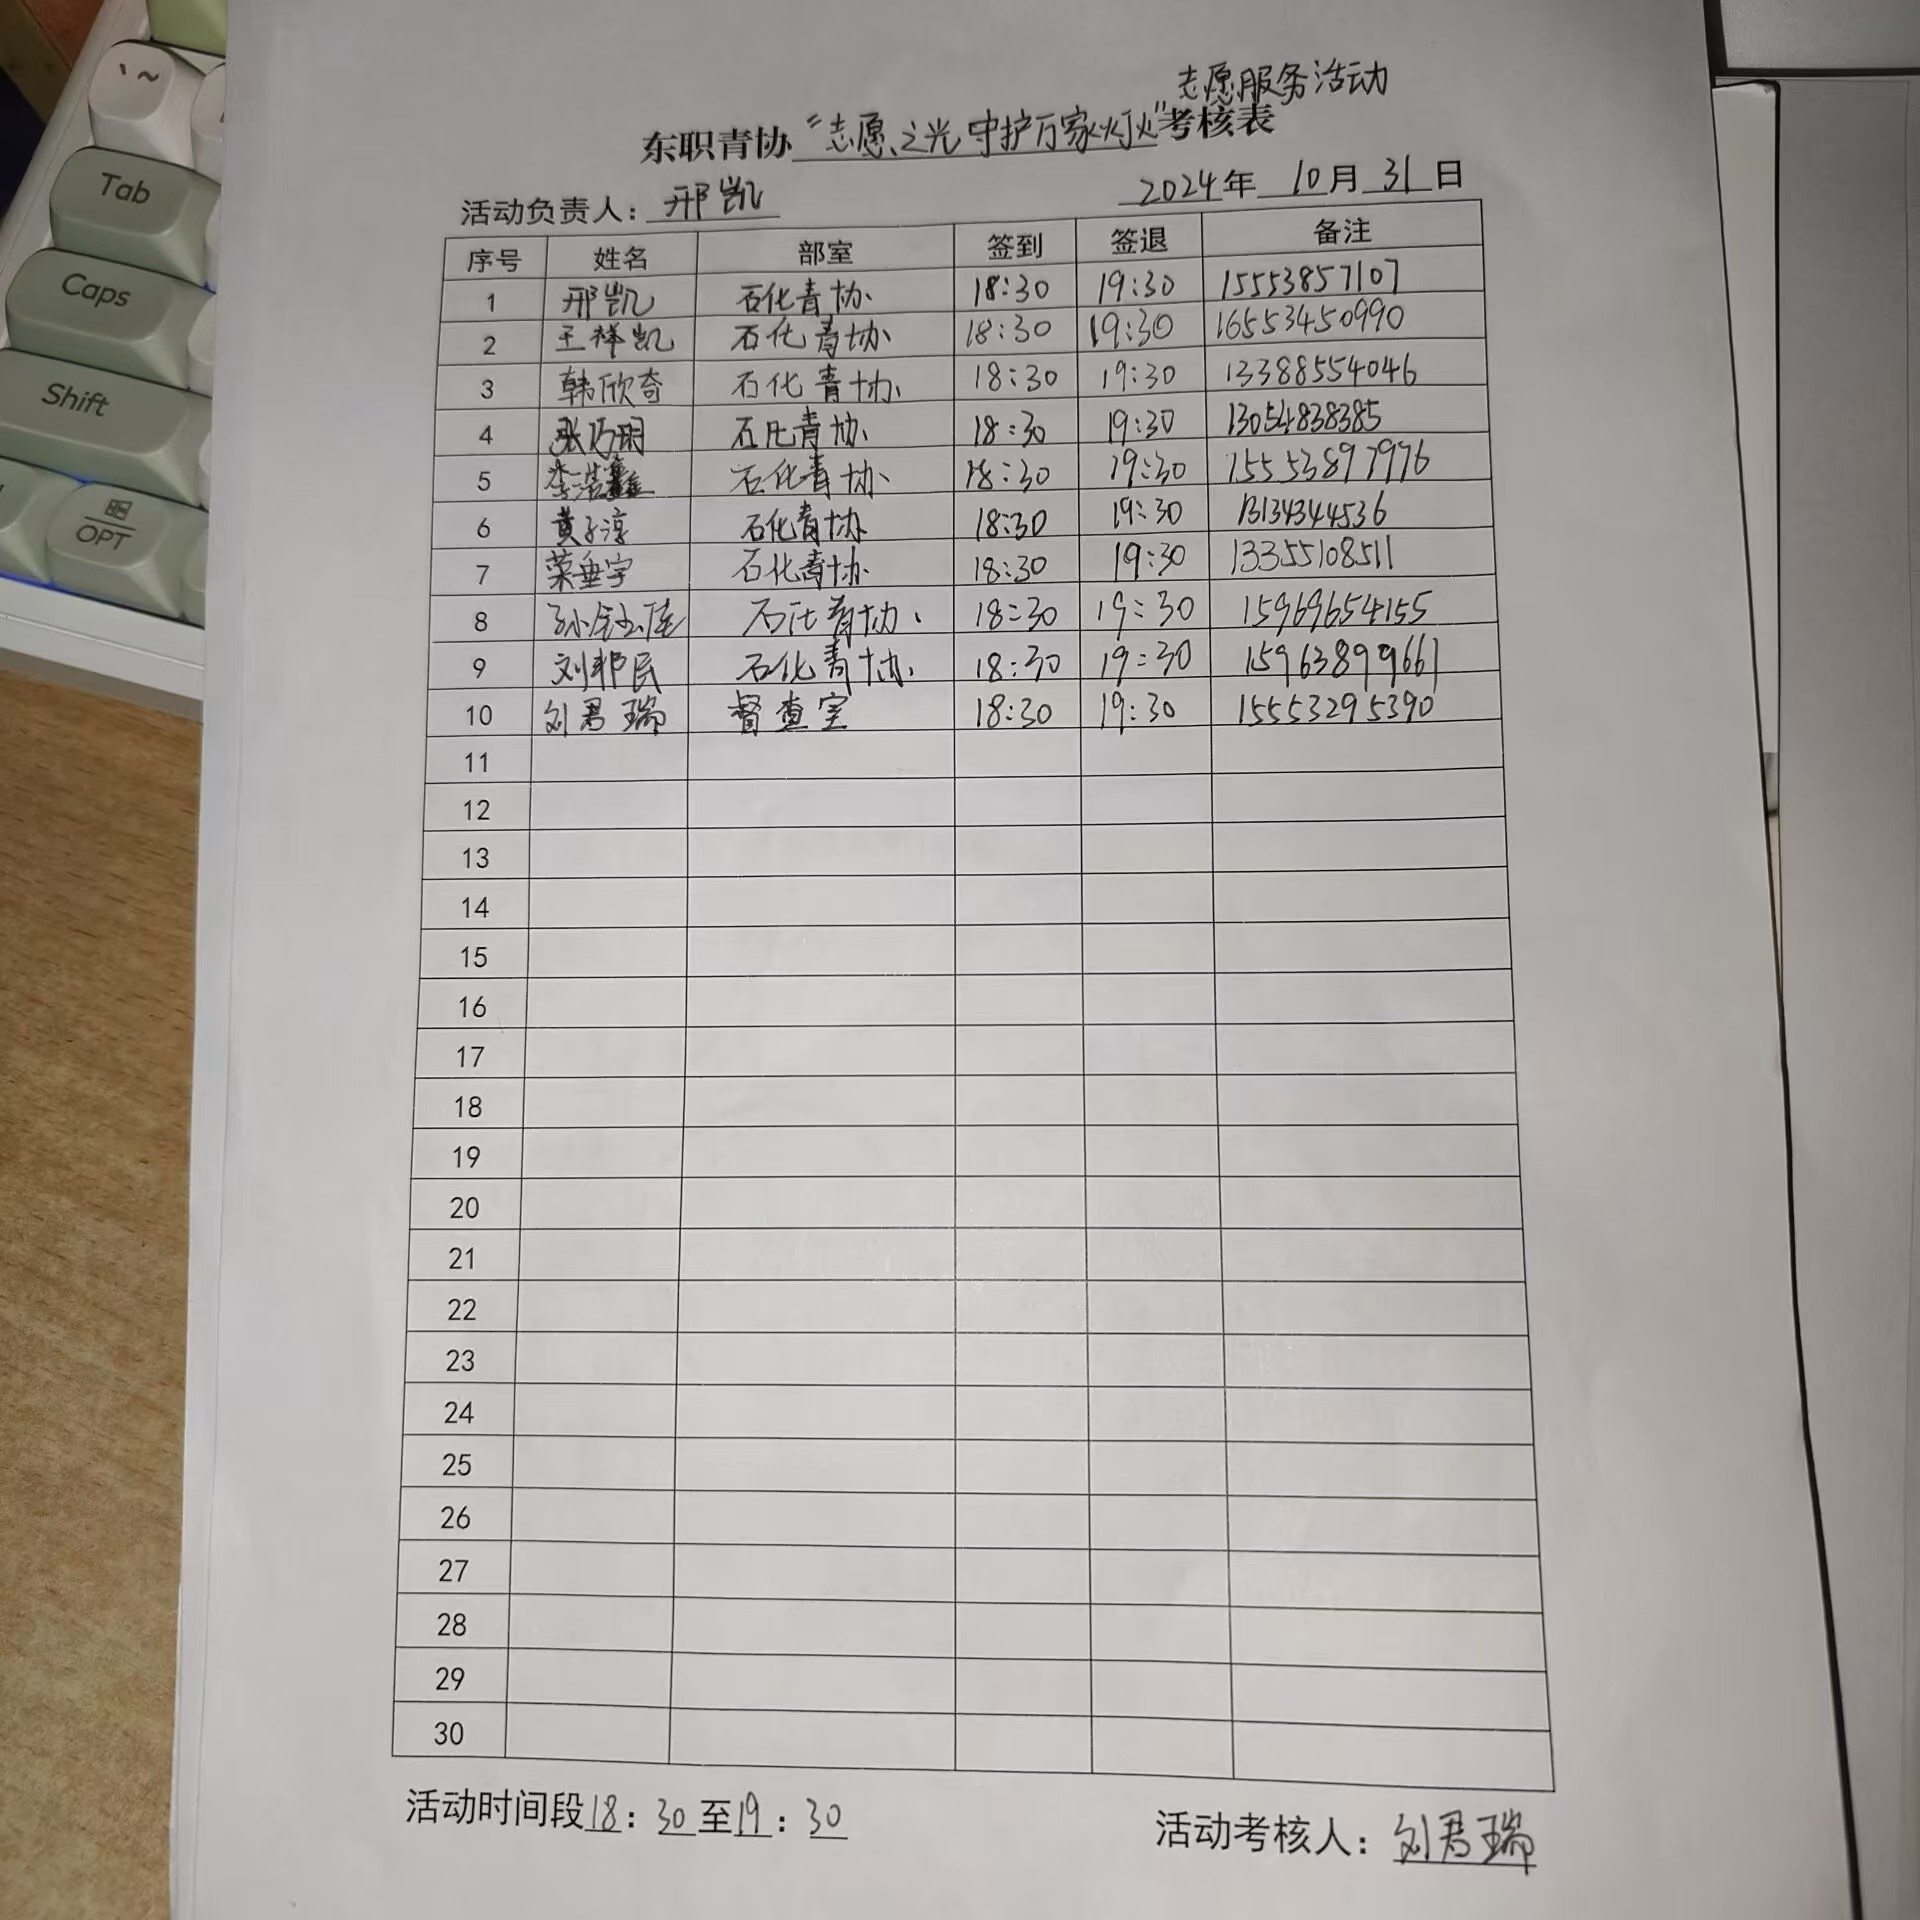 志愿服务活动
东职青协“志愿之光 守护万家灯火”考核表
活动负责人：邢凯 2024年 10月31日
序号 姓名 部室 签到 签退 备注
1 邢凯 石化青协 18:30 19:30 15553857107
2 王祥凯 石化青协 18:30 19:30 16553450990
3 韩欣奇 石化青协 18:30 19:30 13388554046
4 张巧玥 石化青协 18:30 19:30 13054838385
5 李浩鑫 石化青协 18:30 19:30 15553897976
6 黄子淳 石化青协 18:30 19:30 13134344536
7 荣垂宇 石化青协 18:30 19:30 13355108511
8 孙钰佳 石化青协 18:30 19:30 15969654155
9 刘邦民 石化青协 18:30 19:30 15963899661
10 刘君瑞 督查室 18:30 19:30 15553295390
11
12
13
14
15
16
17
18
19
20
21
22
23
24
25
26
27
28
29
30
活动时间段18：30至19：30 活动考核人：刘君瑞
`~
Tab
Caps
Shift
OPT